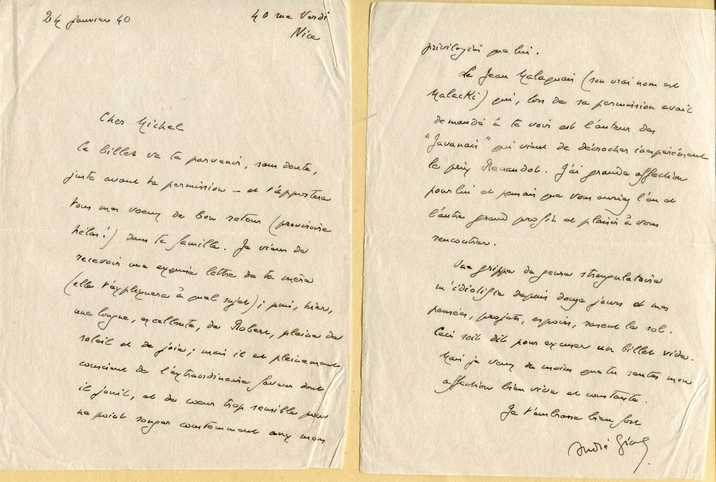 24 janvier 40
40 rue Verdi
Nice
Cher Michel
Ce billet va te parvenir, sans doute,
juste avant ta permission – et t'apportera
tous mes voeux de bon retour (provisoire
hélas!) dans ta famille. Je viens de
recevoir une exquise lettre de ta mère
(elle t'expliquera à quel sujet); puis, hier,
une longue, excellente, de Robert, pleine de
soleil et de joie; mais il est pleinement
conscient de l'extraordinaire faveur dont
il jouit, et de cœur trop sensible pour
ne point songer constamment aux moins
privilégiés que lui.
Le Jean Malaquais (son vrai nom est
Malacki) qui, lors de sa permission avait
demandé à te voir est l'auteur des
"Javanais" qui vient de décrocher inopinément
le prix Renaudot. J'ai grande affection
pour lui et pensais que vous auriez l'un et
l'autre grand profit et plaisir à vous
rencontrer.
Une grippe du genre strangulatoire
m'idiotifie depuis douze jours et mes
pensées, projets, espoirs, rasent le sol.
Ceci soit dit pour excuser un billet vide.
Mais je veux du moins que tu sentes mon
affection bien vive et constante.
Je t'embrasse bien fort
André Gide